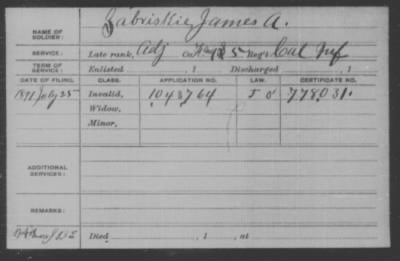 Zabriskie, James A.
NAME OF SOLDIER:
SERVICE: Late rank, Adj Co. 5 Reg't Cal Inf
TERM OF SERVICE: Enlisted , 1 Discharged , 1
DATE OF FILING. CLASS. APPLICATION NO. LAW. CERTIFICATE NO.
1891 July 25 Invalid, 1043764 778031.
Widow,
Minor,
ADDITIONAL SERVICES:
REMARKS:
Died , 1 , at